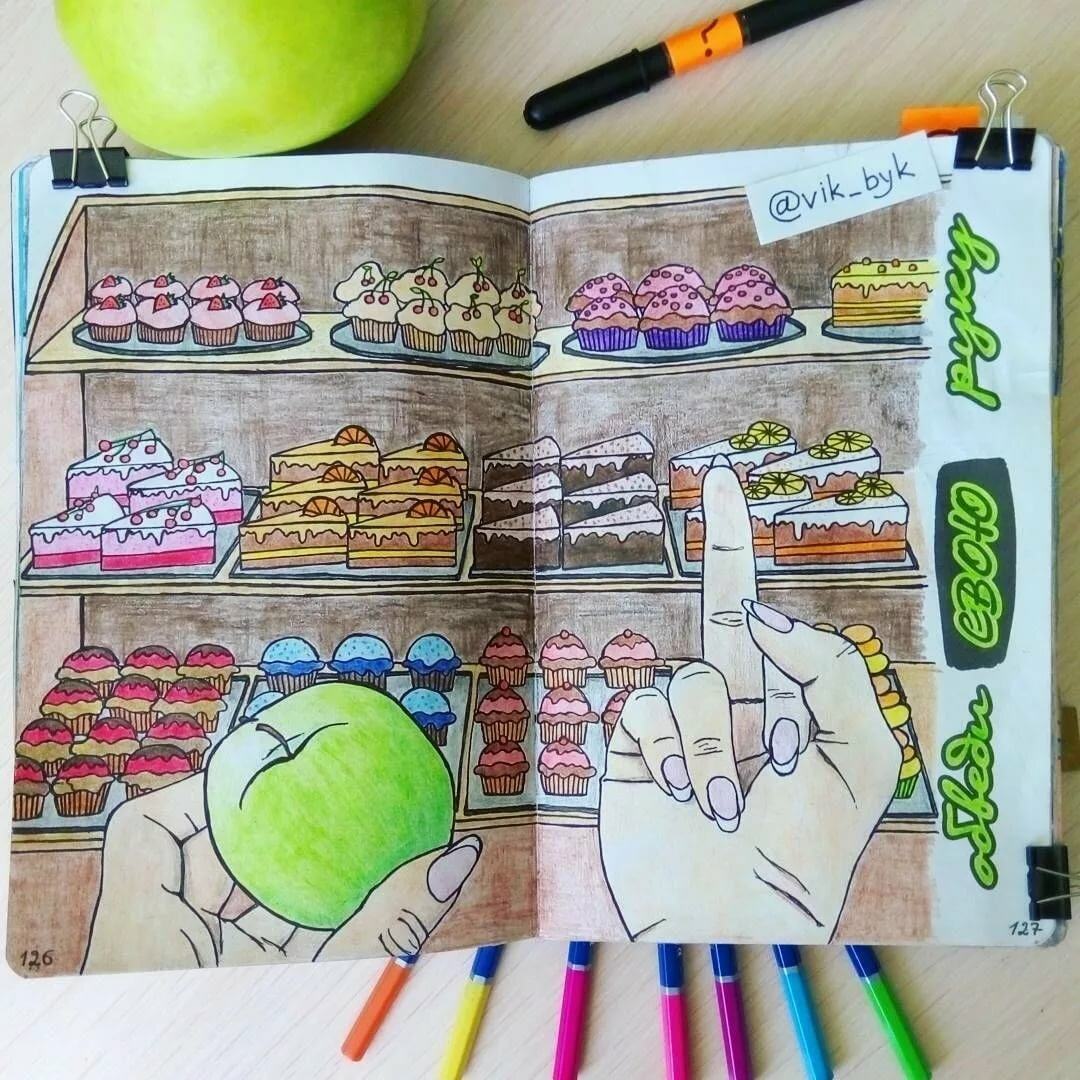 @vik_byk
обведи СВОЮ руку
126
127